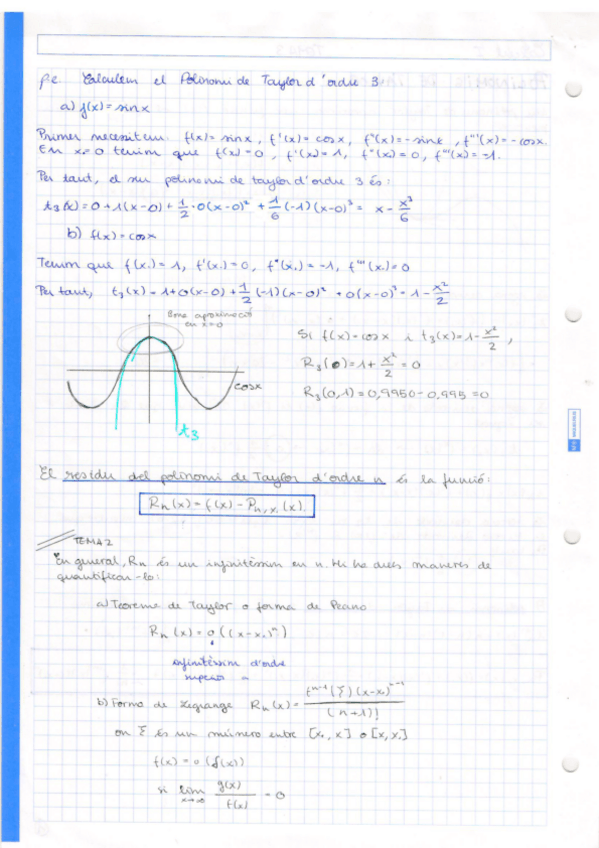 p.e. Calculem el Polinomi de Taylor d'ordre 3
a) f(x) = sinx
Primer necesitem f(x) = sinx, f'(x) = cosx, f''(x) = -sinx, f'''(x) = -cosx.
En x=0 tenim que f(x₀) = 0, f'(x₀) = 1, f''(x₀) = 0, f'''(x₀) = -1.
Per tant, el seu polinomi de taylor d'ordre 3 és:
t₃(x) = 0 + 1(x-0) + 1/2 · 0(x-0)² + 1/6 (-1)(x-0)³ = x - x³/6
b) f(x) = cosx
Tenim que f(x₀) = 1, f'(x₀) = 0, f''(x₀) = -1, f'''(x₀) = 0
Per tant, t₃(x) = 1 + 0(x-0) + 1/2 (-1)(x-0)² + 0(x-0)³ = 1 - x²/2
Bona aproximació
en x=0
cosx
t₃
Si f(x) = cosx i t₃(x) = 1 - x²/2,
R₃(0) = 1 + x²/2 = 0
R₃(0,1) = 0,9950 - 0,995 = 0
El residu del polinomi de Taylor d'ordre n és la funció:
Rₙ(x) = f(x) - Pₙ,ₓ₀(x).
TEMA 2
En general, Rₙ és un infinitèssim en n. Hi ha dues maneres de
quantificar-lo:
a) Teorema de Taylor o forma de Peano
Rₙ(x) = o((x-x₀)ⁿ)
infinitèssim d'ordre
superior a
b) Forma de Lagrange Rₙ(x) =
(n+1)!
on ξ és un número entre [x₀, x] o [x, x₀]
f(x) = o
si lim x→x₀ g(x)/f(x) = 0